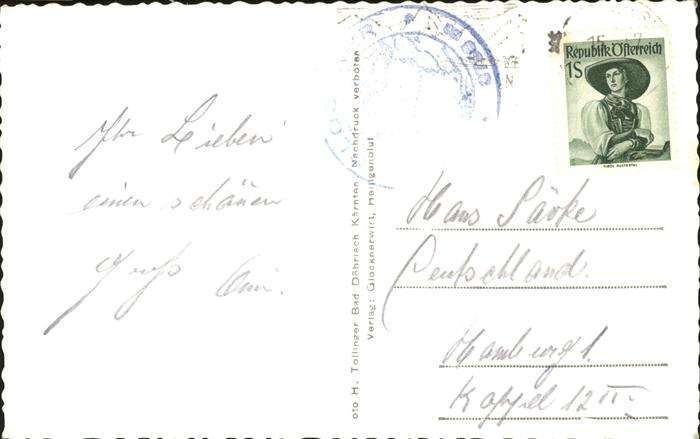 Ihr Lieben
einen schönen
Gruß
Foto H. Tollinger Bad Döbrisch Kärnten, Nachdruck verboten
Verlag: Glocknerwirt, Heiligenblut
Republik Österreich
1S
Hans
Deutschland.
Hamburg 1.
Kappel 12 II.